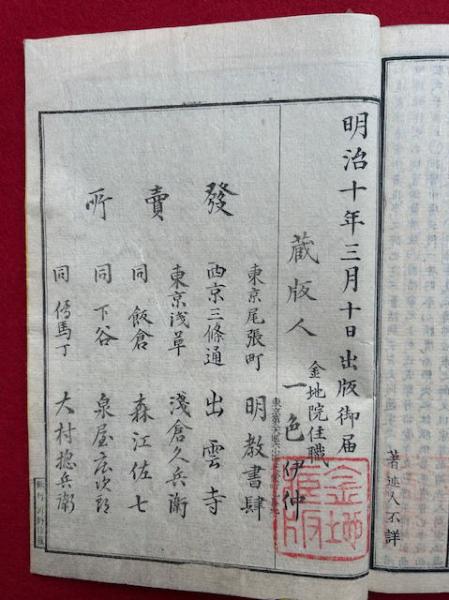 明治十年三月十日出版御届
著述人不詳
藏版人
金地院住職
一色伊仲
金地
藏版
發賣所
東京尾張町 明教書肆
西京三條通 出雲寺
東京浅草 淺倉久兵衛
同飯倉 森江佐七
同下谷 泉屋庄次郎
同傳馬丁 大村摠兵衛